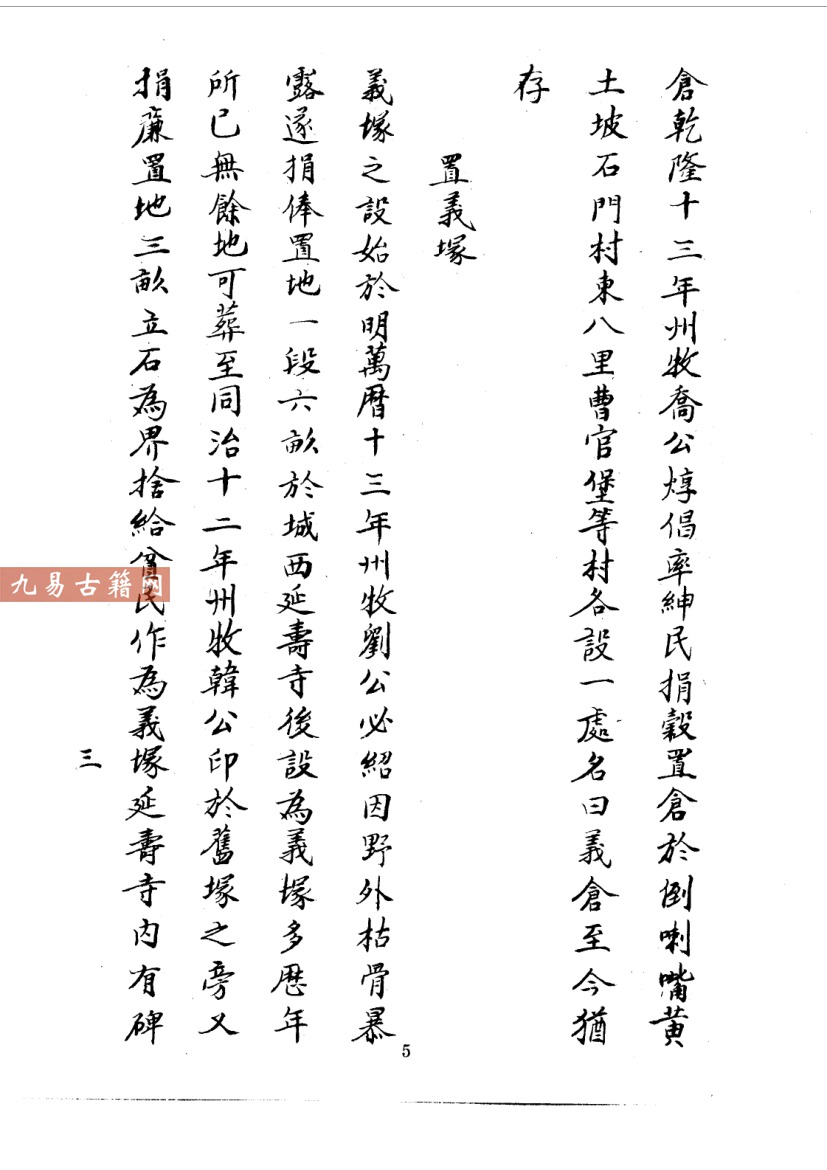 倉乾隆十三年州牧喬公焞倡率紳民捐穀置倉於倒喇嘴黄
土坡石門村東八里曹官堡等村各設一處名曰義倉至今猶
存
置義塚
義塚之設始於明萬曆十三年州牧劉公必紹因野外枯骨暴
露遂捐俸置地一段六畝於城西延壽寺後設為義塚多歷年
所已無餘地可葬至同治十二年州牧韓公印於舊塚之旁又
捐廉置地三畝立石為界捨給貧民作為義塚延壽寺内有碑
三
5
九易古籍网